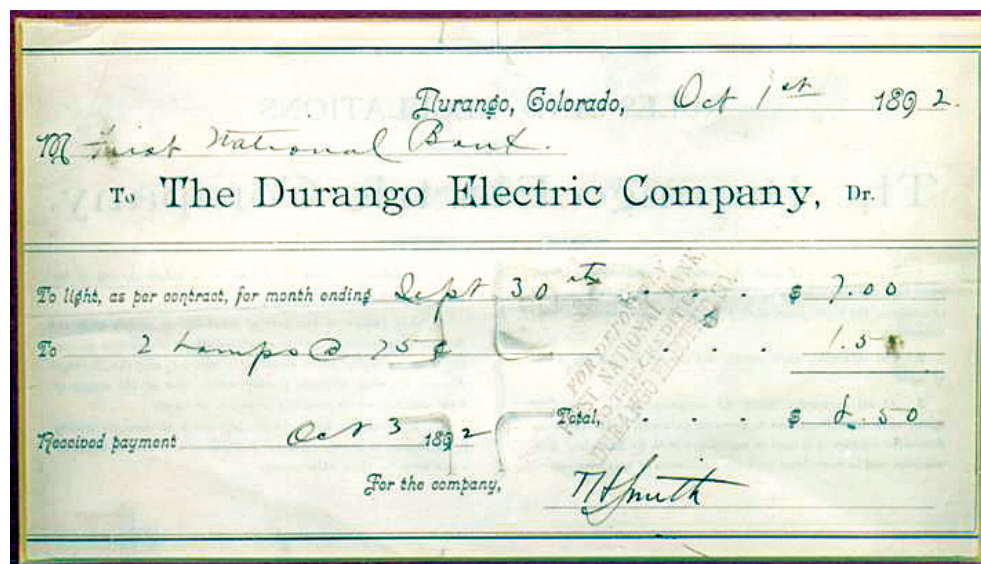 Durango, Colorado, Oct 1st 1892.
M First National Bank.
To The Durango Electric Company, Dr.
To light, as per contract, for month ending Sept 30th . . . $ 7.00
To 2 Lamps @ 75¢ . . . 1.50
Total, . . $ 8.50
Received payment Oct 3 1892
For the company, Smith
FOR DEPOSIT
NATIONAL BANK
DURANGO ELECTRIC